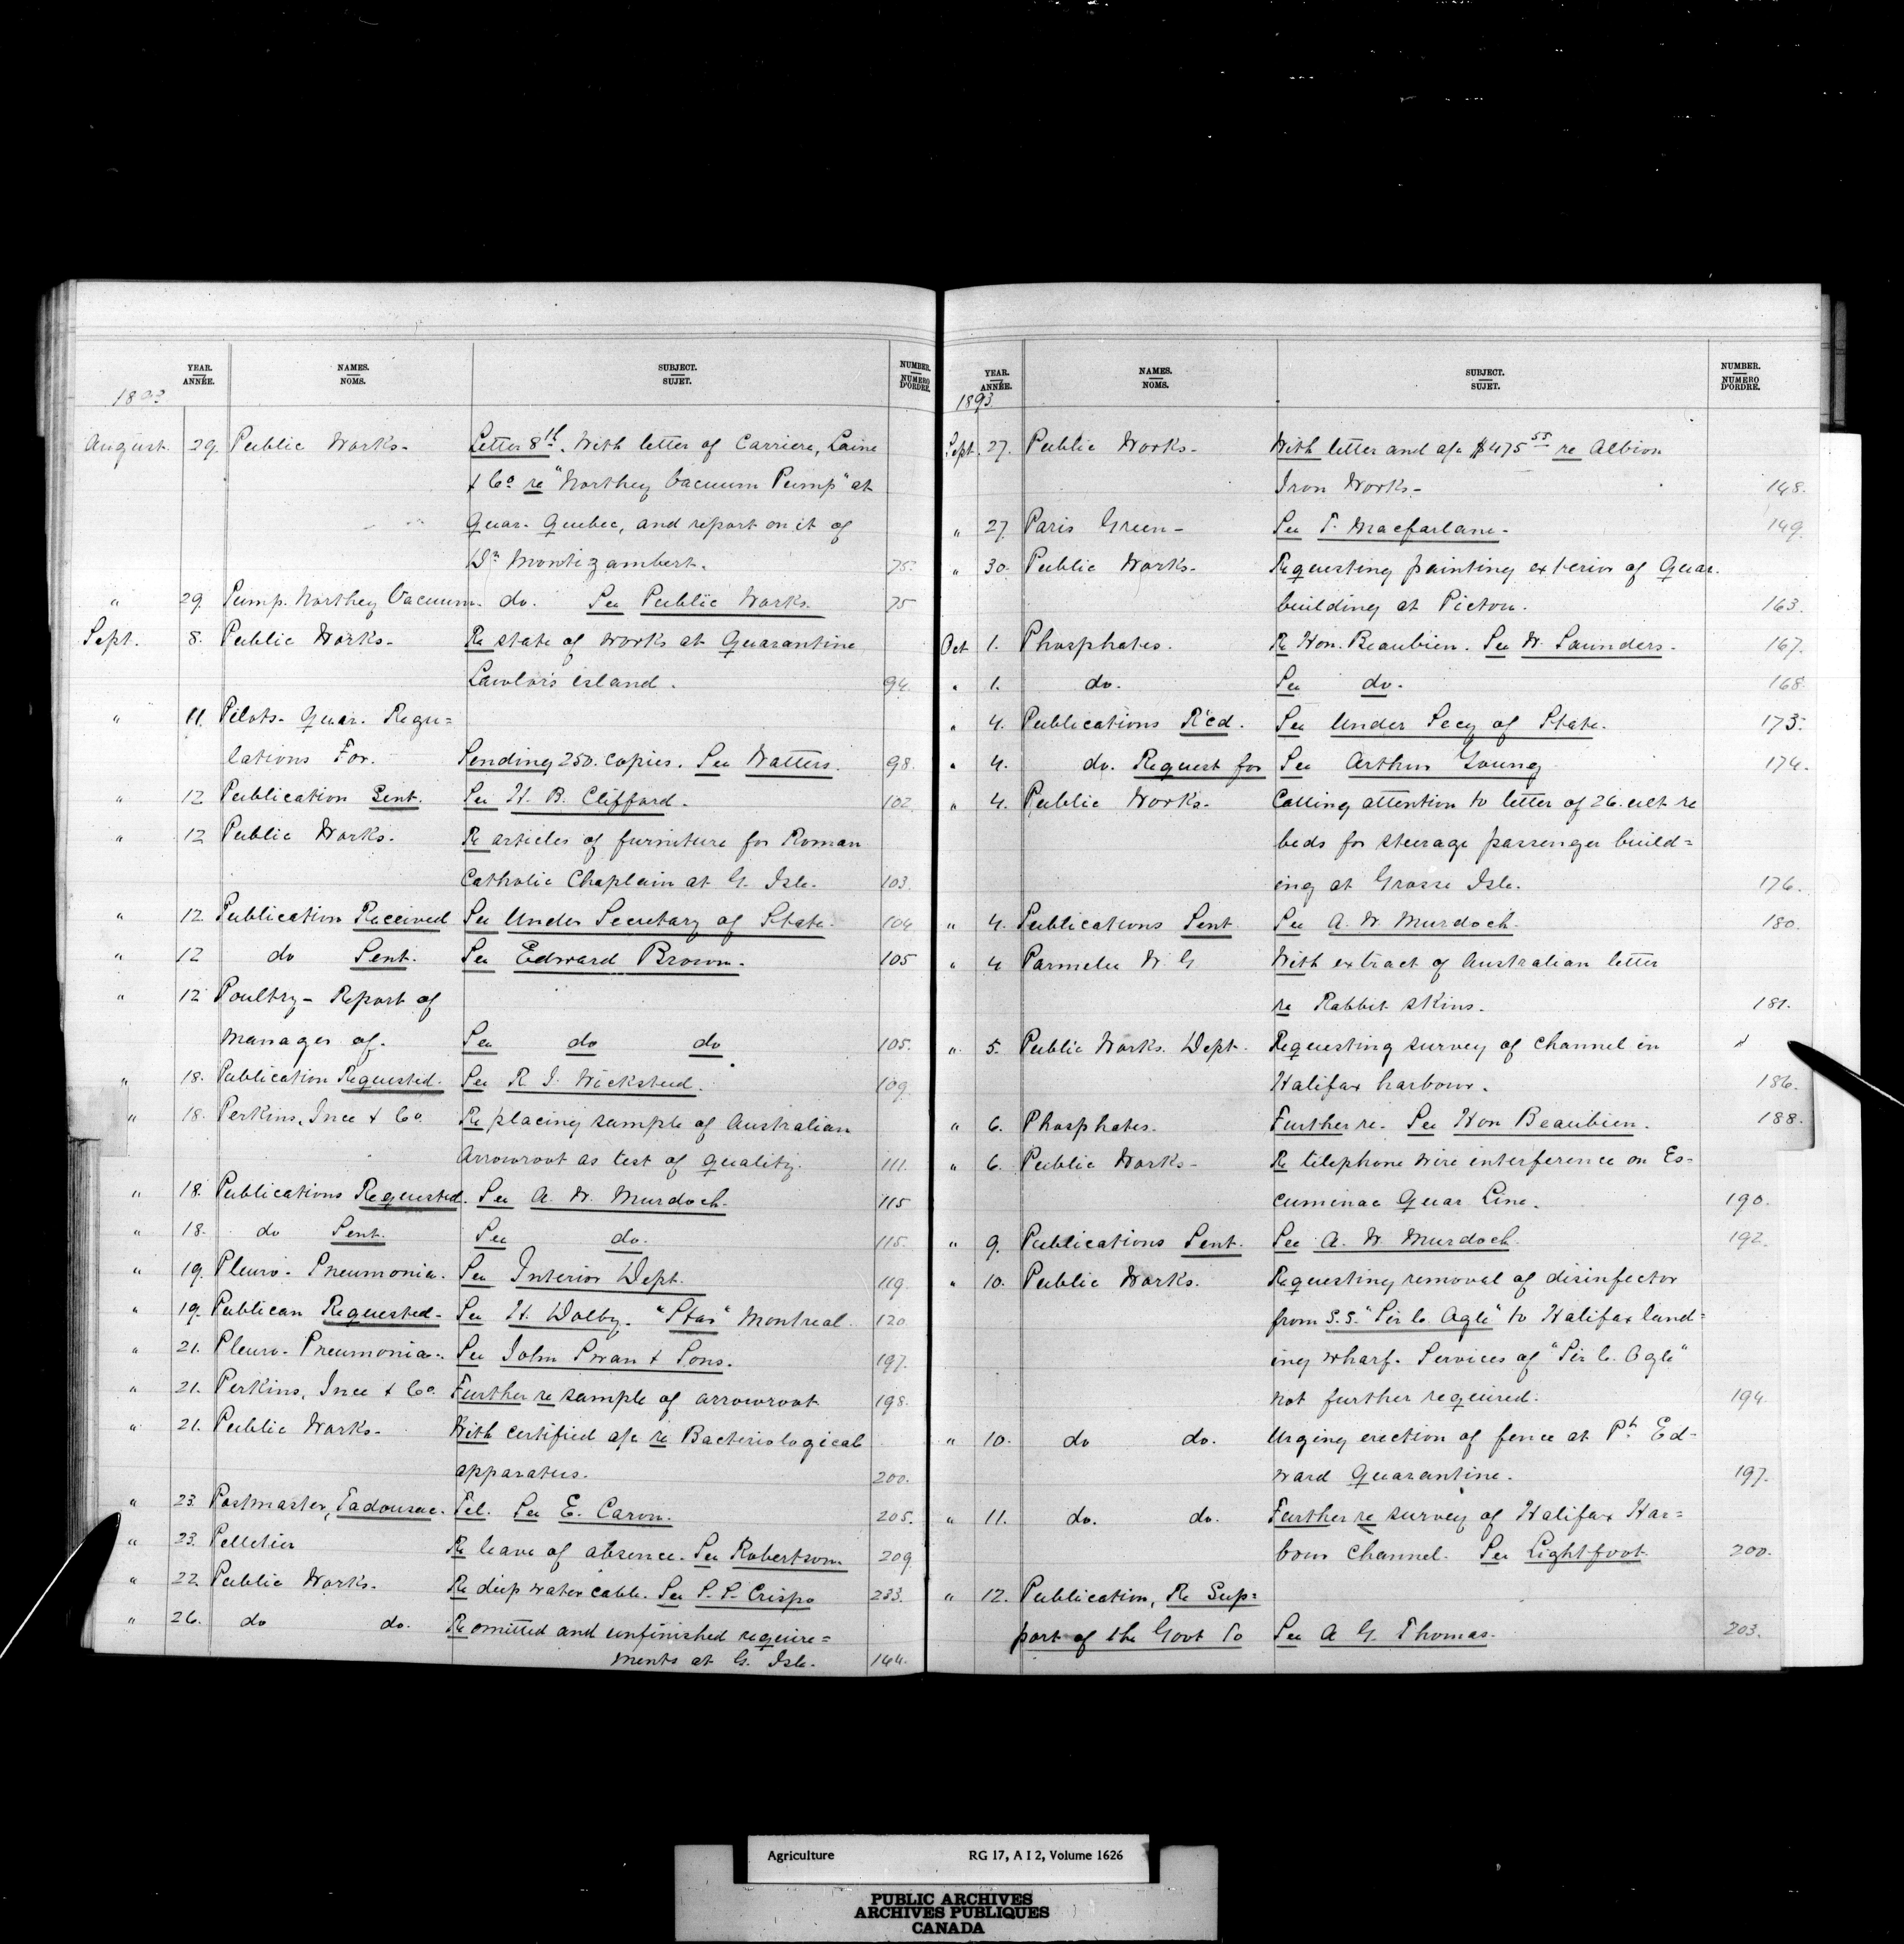 YEAR. ANNÉE. NAMES. NOMS. SUBJECT. SUJET. NUMBER. NUMÉRO D'ORDRE.
1893
August. 29. Public Works- Letter 8th. With letter of Carriere, Laine
& Co re "Northey Vacuum Pump" at
Quar. Quebec, and report on it of
Dr Montizambert. 75.
" 29. Pump. Northey Vacuum. do. See Public Works. 75
Sept. 8. Public Works- Re state of works at Quarantine
Lawlor's island. 94.
" 11. Pilots- Quar. Regu=
lations For. Sending 250. copies. See Watters. 98.
" 12 Publication Sent. See H. B. Clifford. 102.
" 12 Public Works. Re articles of furniture for Roman
Catholic Chaplain at G. Isle. 103.
" 12. Publication Received See Under Secretary of State. 104
" 12 do Sent. See Edward Brown. 105
" 12 Poultry- Report of
Manager of. See do do 105.
" 18. Publication Requested. See R. J. Wicksteed. 109.
" 18. Perkins, Ince & Co. Re placing sample of Australian
Arrowroot as test of quality. 111.
" 18. Publications Requested. See A. W. Murdoch. 115
" 18. do Sent. See do. 115.
" 19. Pleuro- Pneumonia. See Interior Dept. 119.
" 19. Publican Requested- See H. Dalby. "Star" Montreal. 120
" 21. Pleuro- Pneumonia. See John Swan & Sons. 197.
" 21. Perkins, Ince & Co. Further re sample of arrowroot 198.
" 21. Public Works- With certified a/c re Bacteriological
apparatus. 200.
" 23. Postmaster, Tadousac. Tel. See E. Caron. 205.
" 23. Pelletier Re leave of absence. See Robertson 209
" 22. Public Works. Re deep water cable. See P. P. Crispo 233.
" 26. do do. Re omitted and unfinished require=
ments at G. Isle. 144.
YEAR. ANNÉE. NAMES. NOMS. SUBJECT. SUJET. NUMBER. NUMÉRO D'ORDRE.
1893
Sept. 27. Public Works- With letter and a/c $475 55 re Albion
Iron Works- 148.
" 27. Paris Green- See T. Macfarlane. 149.
" 30. Public Works. Requesting painting exterior of Quar.
building at Pictou. 163.
Oct 1. Phosphates. Re Hon. Beaubien. See W. Saunders. 167.
" 1. do. See do. 168
" 4. Publications R'cd. See Under Secy of State. 173.
" 4. do. Request for See Arthur Young 174.
" 4. Public Works- Calling attention to letter of 26. ult re
beds for steerage passenger build=
ing at Grosse Isle. 176.
" 4. Publications Sent. See A. W. Murdoch. 180.
" 4 Parmelee W. G With extract of Australian letter
re Rabbit skins. 181.
" 5. Public Works. Dept. Requesting survey of channel in
Halifax harbour. 186.
" 6. Phosphates. Further re. See Hon Beaubien. 188.
" 6. Public Works- Re telephone wire interference on Es-
cuminac Quar Line. 190.
" 9. Publications Sent. See A. W. Murdoch. 192.
" 10. Public Works. Requesting removal of disinfector
from S.S. "Sir C. Ogle" to Halifax land=
ing wharf. Services of "Sir C. Ogle"
not further required. 194.
" 10. do do. Urging erection of fence at Pt. Ed-
ward Quarantine. 197.
" 11. do. do. Further re survey of Halifax Har=
bour Channel. See Lightfoot 200.
" 12. Publication, Re Sup=
port of the Govt To See A G. Thomas. 203.
Agriculture RG 17, A I 2, Volume 1626
PUBLIC ARCHIVES
ARCHIVES PUBLIQUES
CANADA